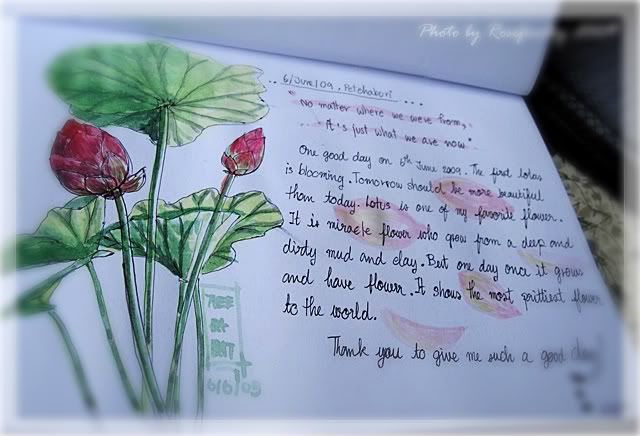 Photo by
.. 6/June/09 , Petchaburi ....
" No matter where we were from,
It's just what we are now "
One good day on 6th June 2009. The first lotus
is blooming. Tomorrow should be more beautiful
than today. Lotus is one of my favorite flower..
It is miracle flower who grow from a deep and
dirty mud and clay. But one day once it grows
and have flower. It shows the most prittiest flower
to the world.
Thank you to give me such a good day
6/6/09